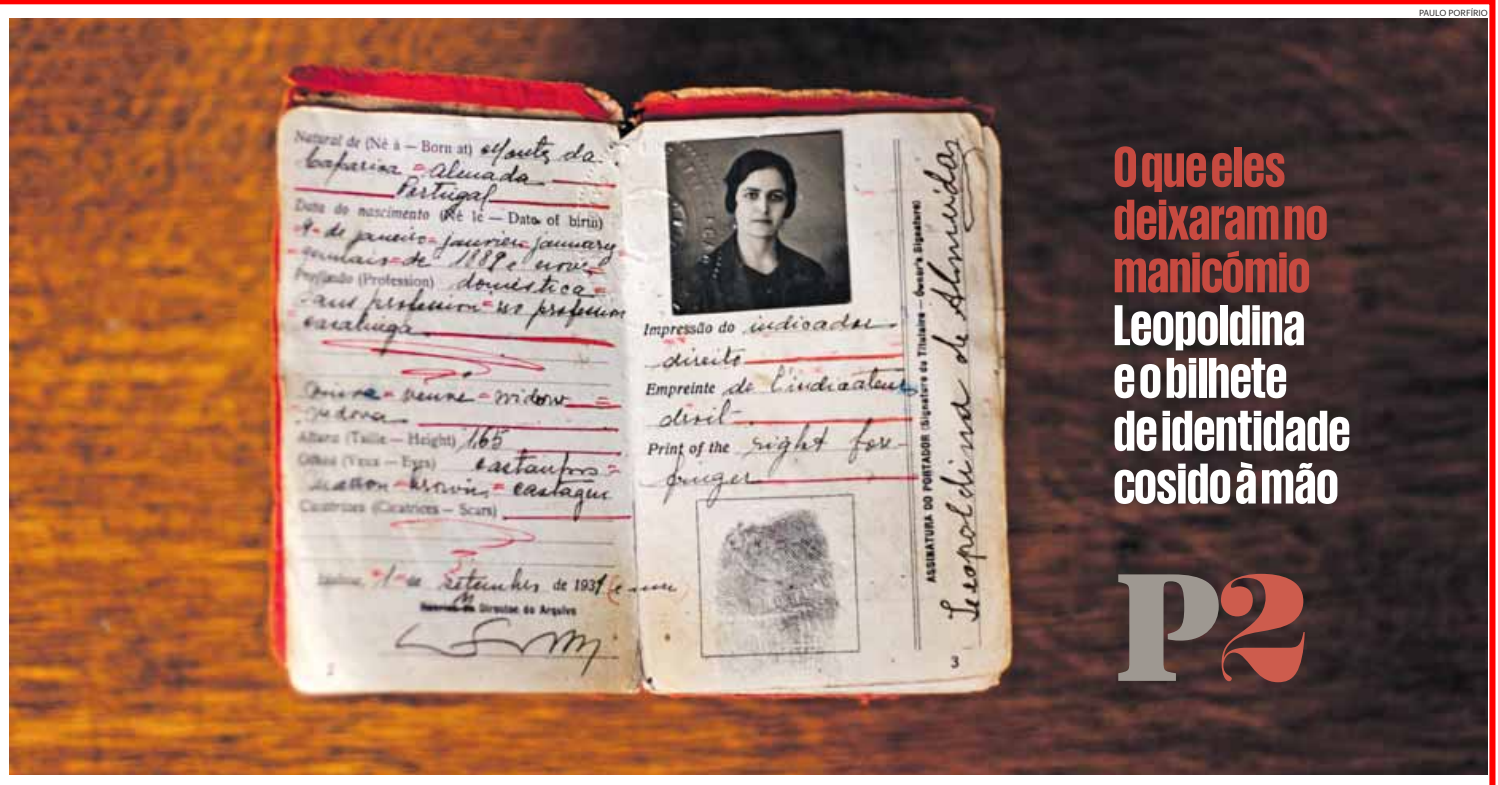 PAULO PORFÍRIO
Natural de (Né à — Born at) Monte da
Caparica = Almada
Portugal
Data do nascimento (Né le — Date of birth)
9 - de janeiro = janvier = january
de 1889 e nove
Profissão (Profession) doméstica =
sans profession = no profession
casalinga
veuve = widow =
vedova
Altura (Taille — Height) 1,65
Olhos (Yeux — Eyes) castanhos =
marron = brown = castagni
Cicatrizes (Cicatrices — Scars)
1 - de Setembro de 1931
Director do Arquivo
Impressão do indicador
direito
Empreinte de l'indicateur
droit
Print of the right fore-
finger
3
ASSINATURA DO PORTADOR (Signature du Titulaire — Owner's Signature)
Leopoldina de Almeida
O que eles
deixaram no
manicómio
Leopoldina
e o bilhete
de identidade
cosido à mão
P2